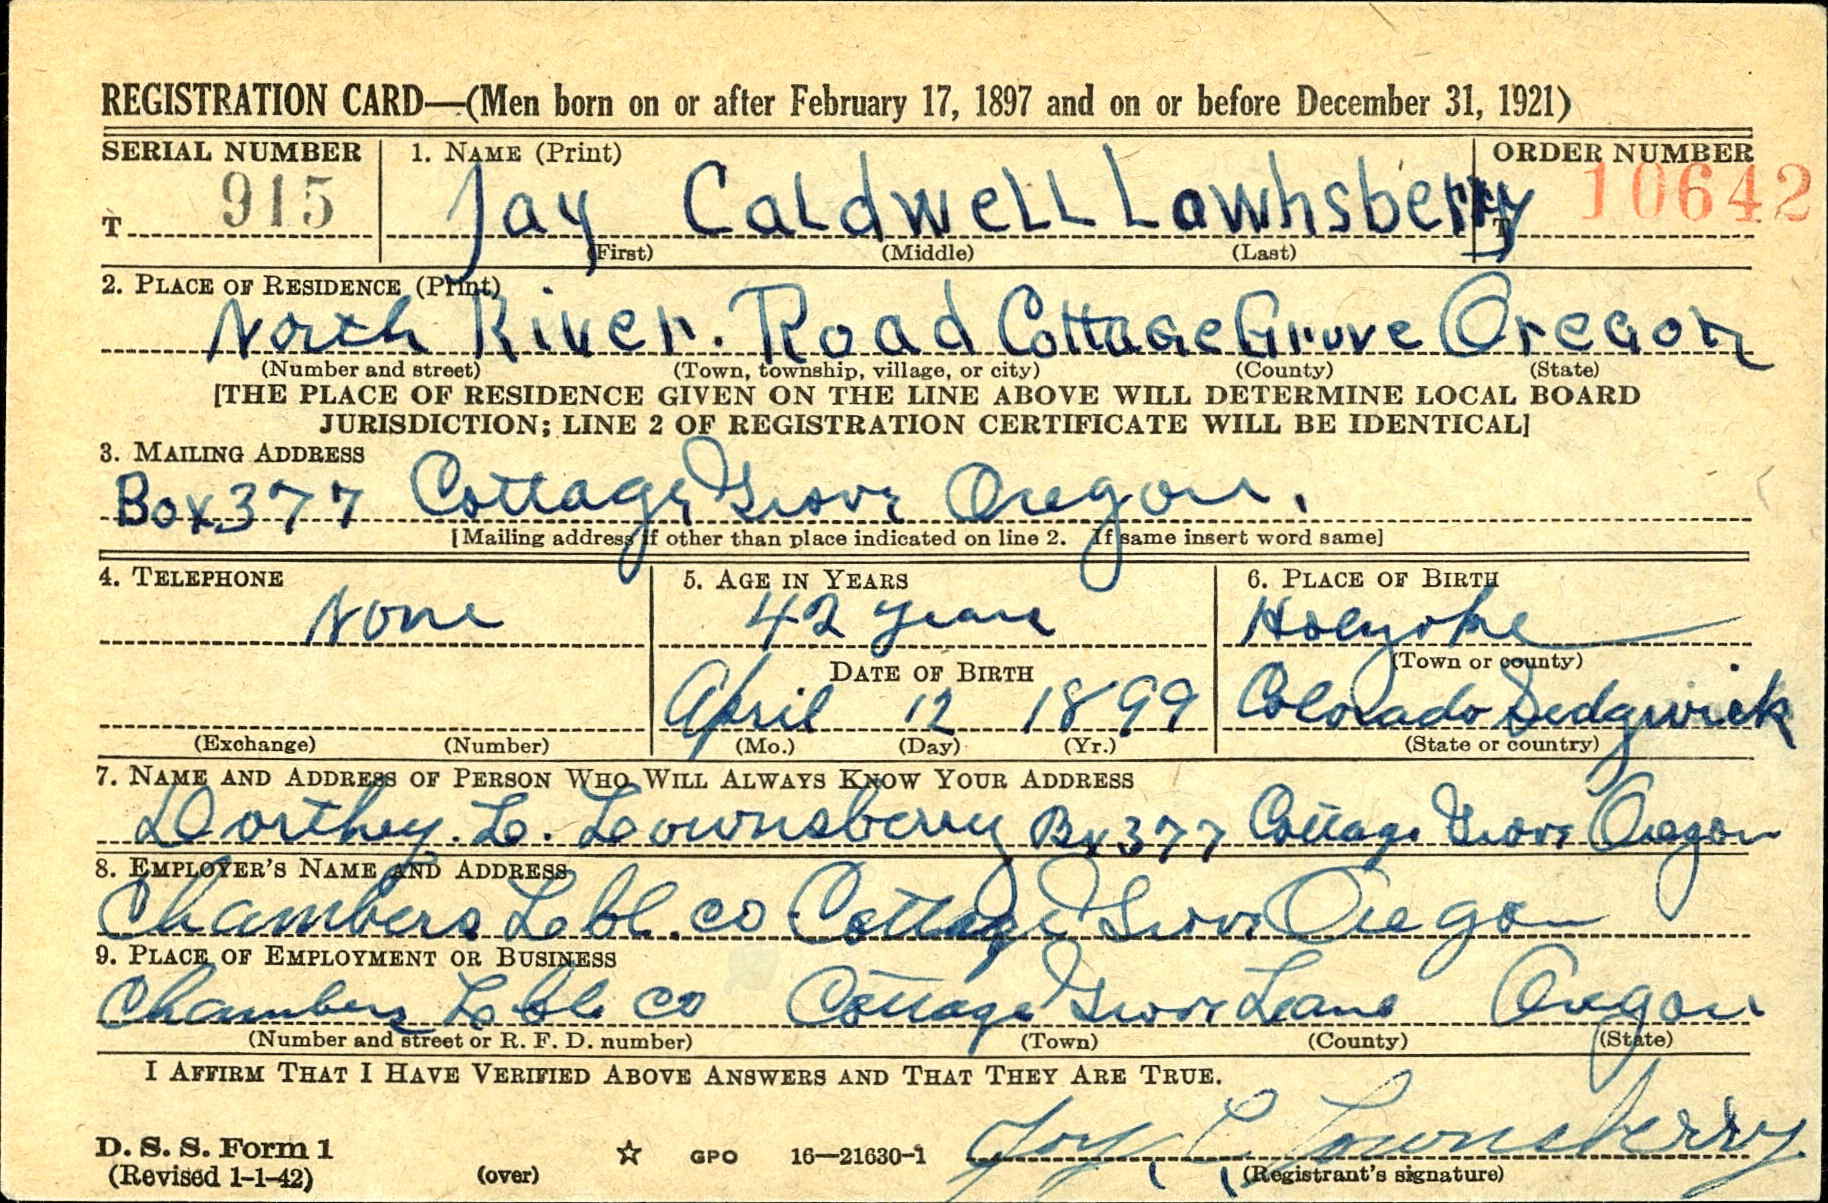 REGISTRATION CARD—(Men born on or after February 17, 1897 and on or before December 31, 1921)
SERIAL NUMBER 1. NAME (Print) ORDER NUMBER
T 915 Jay Caldwell Lownsberry T 10642
(First) (Middle) (Last)
2. PLACE OF RESIDENCE (Print)
North River. Road Cottage Grove Oregon
(Number and street) (Town, township, village, or city) (County) (State)
[THE PLACE OF RESIDENCE GIVEN ON THE LINE ABOVE WILL DETERMINE LOCAL BOARD
JURISDICTION; LINE 2 OF REGISTRATION CERTIFICATE WILL BE IDENTICAL]
3. MAILING ADDRESS
Box 377 Cottage Grove Oregon.
[Mailing address if other than place indicated on line 2. If same insert word same]
4. TELEPHONE 5. AGE IN YEARS 6. PLACE OF BIRTH
None 42 years Holyoke
DATE OF BIRTH (Town or county)
April 12 1899 Colorado Sedgwick
(Exchange) (Number) (Mo.) (Day) (Yr.) (State or country)
7. NAME AND ADDRESS OF PERSON WHO WILL ALWAYS KNOW YOUR ADDRESS
Dorthey. L. Lownsberry Bx 377 Cottage Grove Oregon
8. EMPLOYER'S NAME AND ADDRESS
Chambers Lbl. co Cottage Grove Oregon
9. PLACE OF EMPLOYMENT OR BUSINESS
Chambers Lbl. co Cottage Grove Lane Oregon
(Number and street or R. F. D. number) (Town) (County) (State)
I AFFIRM THAT I HAVE VERIFIED ABOVE ANSWERS AND THAT THEY ARE TRUE.
Jay, C, Lownsberry.
D. S. S. Form 1
(Revised 1-1-42) (over) ☆ GPO 16—21630-1 (Registrant's signature)